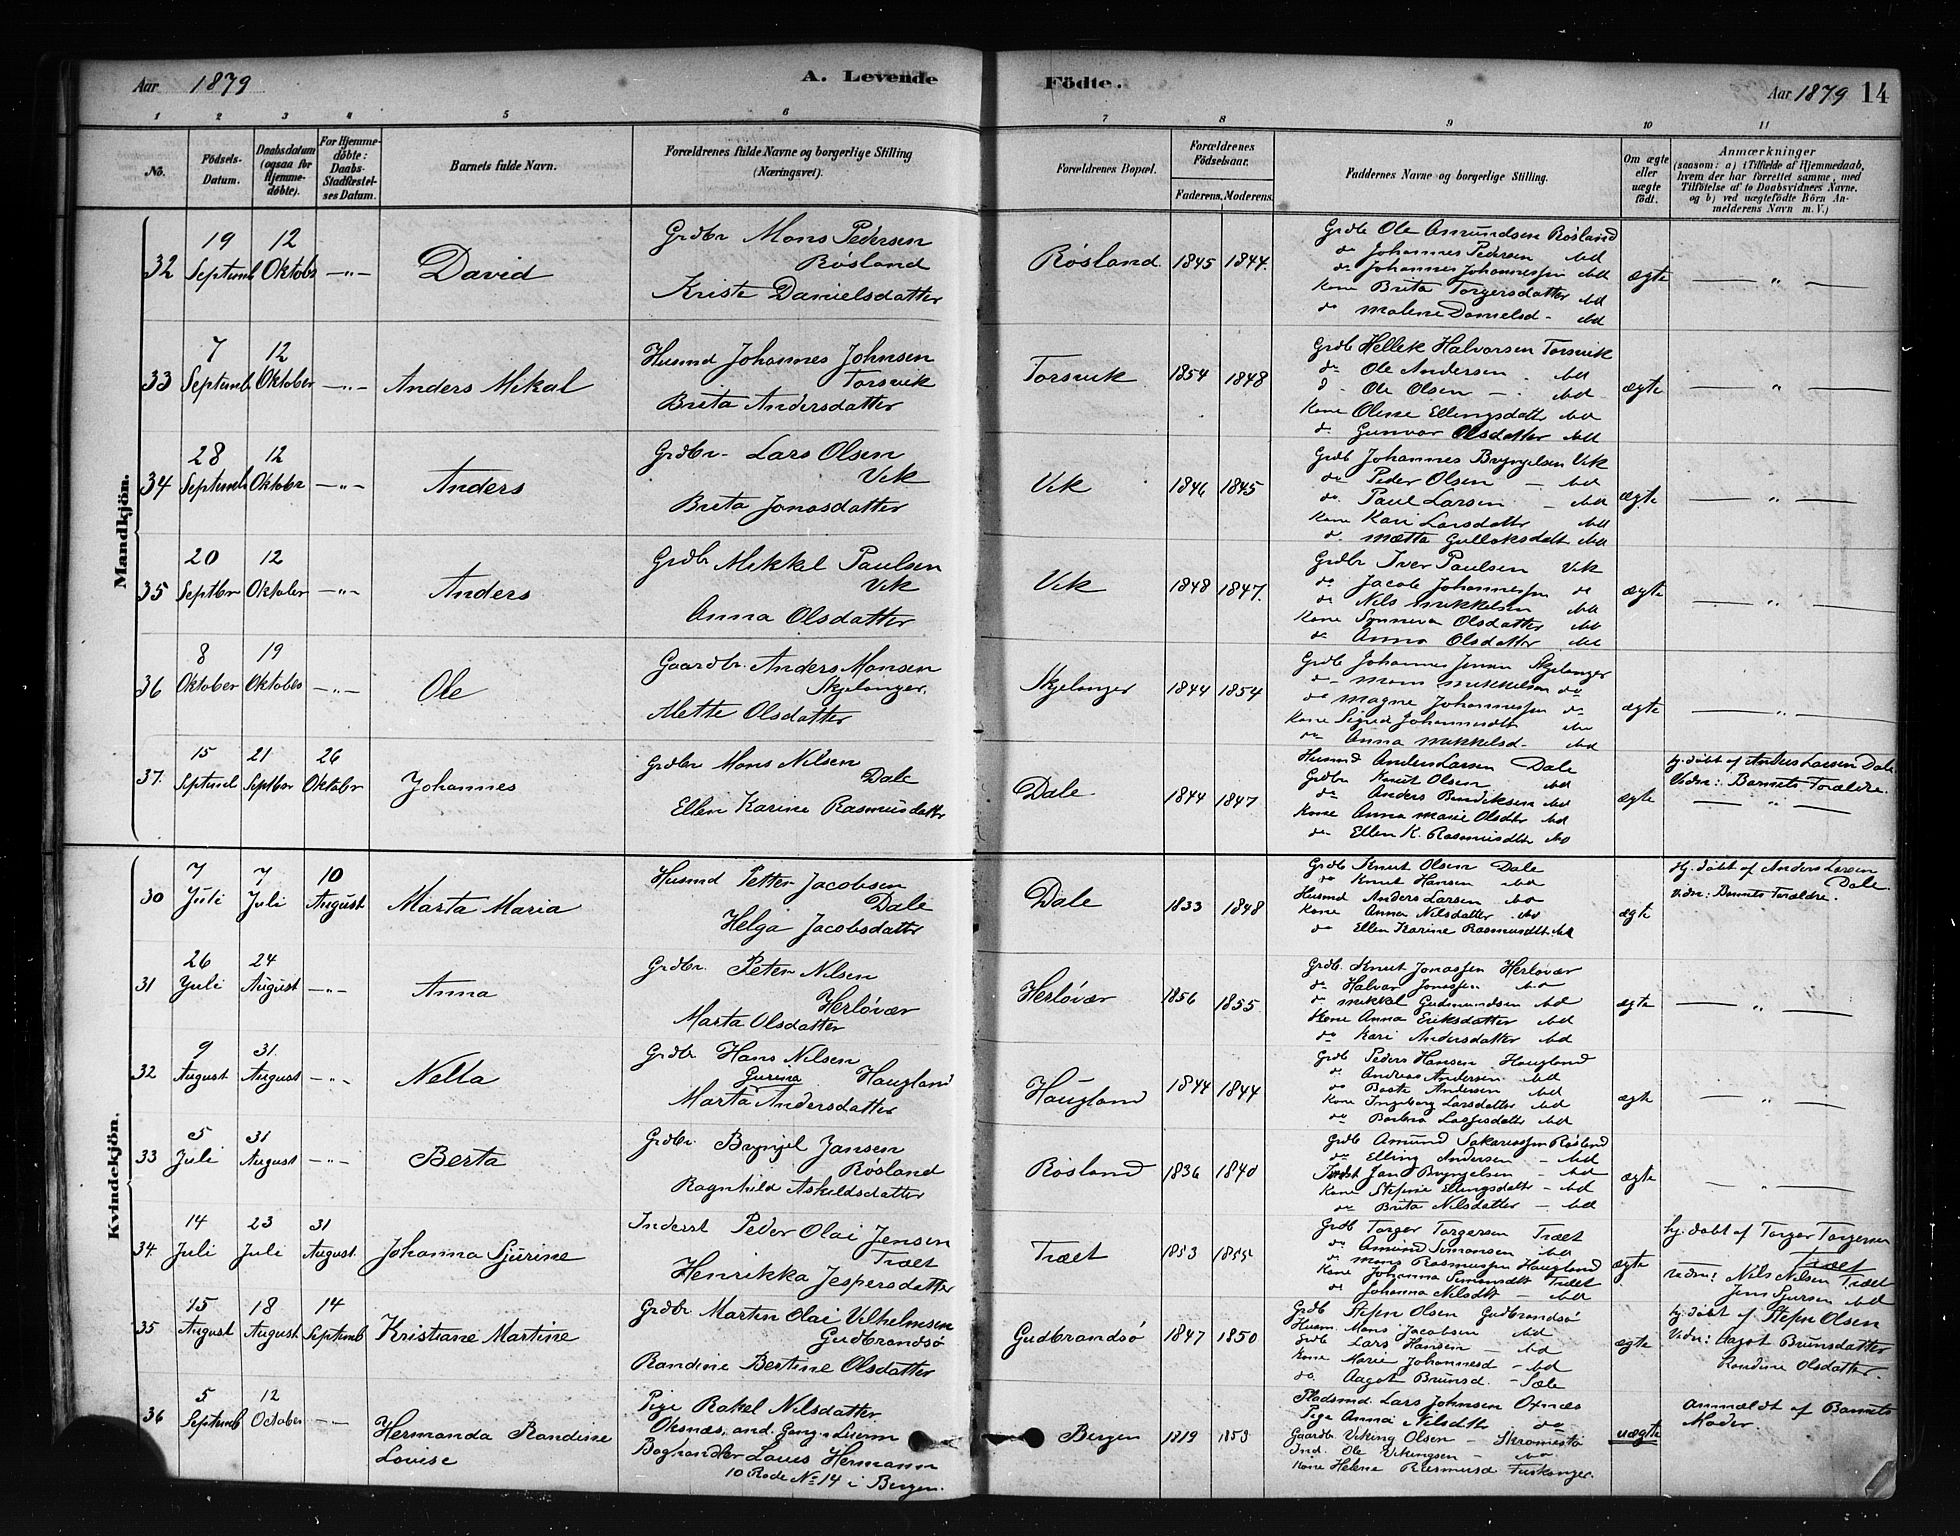 Aar 1879
A. Levende Födte.
Aar 1879 14
1 2 3 4 5 6 7 8 9 10 11
No.
Födsels-Datum.
Daabsdatum (ogsaa for Hjemme-döbte).
For Hjemme-döbte: Daabs-Stadfæstel-ses Datum.
Barnets fulde Navn.
Forældrenes fulde Navne og borgerlige Stilling (Næringsvei).
Forældrenes Bopæl.
Forældrenes Födselsaar.
Faderens. Moderens.
Faddernes Navne og borgerlige Stilling.
Om ægte eller uægte födt.
Anmærkninger
(saasom: a) i Tilfælde af Hjemmedaab,
hvem der har forrettet samme, med
Tilföielse af to Daabsvidners Navne,
og b) ved uægtefödte Börn An-
melderens Navn m. V.)
Mandkjön.
32 19 Septemb 12 Oktobr —"— David
Grdbr Mons Pedersen
Røsland
Kriste Danielsdatter
Røsland 1845 1844.
Grdb Ole Amundsen Røsland
do Johannes Pedersen ibd
do Johannes Johannessen ibd
Kone Brita Torgersdatter ibd
do Malene Danielsd - ibd
ægte — " —
33 7 Septemb 12 Oktober —"— Anders Mikal
Husmd Johannes Johnsen
Torsvik
Brita Andersdatter
Torsvik 1854 1848
Grdb Hellek Halvorsen Torsvik
do Ole Andersen - ibd
d - Ole Olsen - ibd
Kone Oline Ellingsdatt ibd
do Gunvor Olsdatter ibd
ægte — " —
34 28 Septemb 12 Oktobr —"— Anders
Grdbr - Lars Olsen
Vik
Brita Jonasdatter
Vik 1846 1845
Grdb Johannes Brynjelsen Vik
do Peder Olsen - ibd
do Paul Larsen - ibd
Kone Kari Larsdatter ibd
d. Mætta Gulleksdatt ibd
ægte — " —
35 20 Septbr 12 Oktober —"— Anders
Grdbr Mikkel Paulsen
Vik
Anna Olsdatter
Vik 1848 1847.
Grdbr Iver Paulsen Vik
do Jacob Johannessen do
do Nils Mikkelsen ibd
Kone Synneva Olsdatter ibd
do Anna Olsdatter ibd
ægte — " —
36 8 Oktober 19 Oktober —"— Ole
Gaardbr. Anders Monsen
Skjelanger.
Mette Olsdatter
Skjelanger 1844 1854
Grdb Johannes Jensen Skjelanger
do - Mons Mikkelsen do
do Magne Johannessen do
Kone Sigrid Johannesdt ibd
do Anna Mikkelsd - ibd
ægte — " —
37. 15 Septemb 21 Septbr 26 Oktobr Johannes
Grdbr Mons Nilsen
Dale
Ellen Karine Rasmusdatter
Dale 1844 1847
Husmd Anders Larsen Dale
Grdbr Knut Olsen ibd
do Anders Bendiksen ibd
Kone Anna Marie Olsdtr ibd
do Ellen K. Rasmusdtr ibd
ægte
hj. døbt af Anders Larsen Dale
Vidn: Barnets Forældre.
— " —
Kvindekjön.
30 7 Juli 7 Juli 10 August Marta Maria
Husmd Petter Jacobsen
Dale
Helga Jacobsdatter
Dale 1833 1848
Grdb Knut Olsen Dale
do Knut Hansen ibd
Husmd Anders Larsen ibd
Kone Anna Nilsdatter ibd
do Ellen Karine Rasmusdtr ibd
ægte
Hj. døbt af Anders Larsen
Dale.
Vidn: Barnets Forældre.
31 26 Juli 24 August —"— Anna
Grdbr. Peter Nilsen
Herløvær
Marta Olsdatter
Herløvær 1856 1855
Grdb. Knut Jonassen Herløvær
do Halvar Jonassen ibd
d. Mikkel Gudmundsen ibd
Kone Anna Eriksdatter ibd
do Kari Andersdatter ibd
ægte — " —
32 9 August 31. August —"— Nella
Grdbr Hans Nilsen
Gurina Haugland
Marta Andersdatter
Haugland 1844 1844
Grdb Peders Hansen Haugland
do Andreas Andersen ibd
do Baste Andersen ibd
Kone Ingeborg Larsdatter ibd
do Larsdatter ibd
ægte — " —
33 5 Juli 31 August —"— Berta
Grdbr. Brynjel Jansen
Røsland
Ragnhild Askildsdatter
Røsland 1836 1840
Grdb Amund Sakariassen Røsland
do Elling Andersen - ibd
Indst Jan Brynjelsen - ibd
Kone Stefine Ellingsdatter - ibd
do Brita Nilsdatter - ibd
ægte — " —
34. 14 Juli 23 Juli 31 August. Johanna Sjurine
Inderst Peder Olai Jensen
Træet
Henrikka Jespersdatter
Træet 1853 1855
Grdb Torger Torgersen Træet
do Amund Simonsen ibd
do Mons Rasmussen Haugland
Kone Johanna Simonsdt Træet
do Johanna Nilsdtr - ibd
ægte
hj. døbt af Torger Torgersen
Træet
Vidn: Nils Nilsen Træet
Jens Sjursen ibd
35 15 August 18 August 14 Septemb Kristiane Martine
Grdbr Martin Olai Vilhelmsen
Gudbrandsø
Randine Bertine Olsdatter
Gudbrandsø 1847 1850
Grdb Stefen Olsen Gudbrandsø
Husm Mons Jacobsen ibd
Grdb Lars Hansen - ibd
Kone Marie Johannesd - ibd
do. Aagot Brunsd. - Sæle
ægte
hj. døbt af Stefen Olsen
Vidn: Aagot Brunsdatter
Randine Olsdatter.
36 5 Septemb 12 October —"— Hermanda Randine
Lovise
Pige Rakel Nilsdatter
Oksnæs, and. Gang. Leierm
Boghandler Louis Hermann
10 Rode No 14 i Bergen.
Bergen 1819 1853
Pladsmd Lars Johnsen Oxnæs
Pige Anna Nilsdtr do
Gaardbr Viking Olsen - Skromestø
Ind. Ole Vikingsen - do
Kone Helene Rasmusd Tuskanger.
uægte
Anmældt af Barnets
Moder.